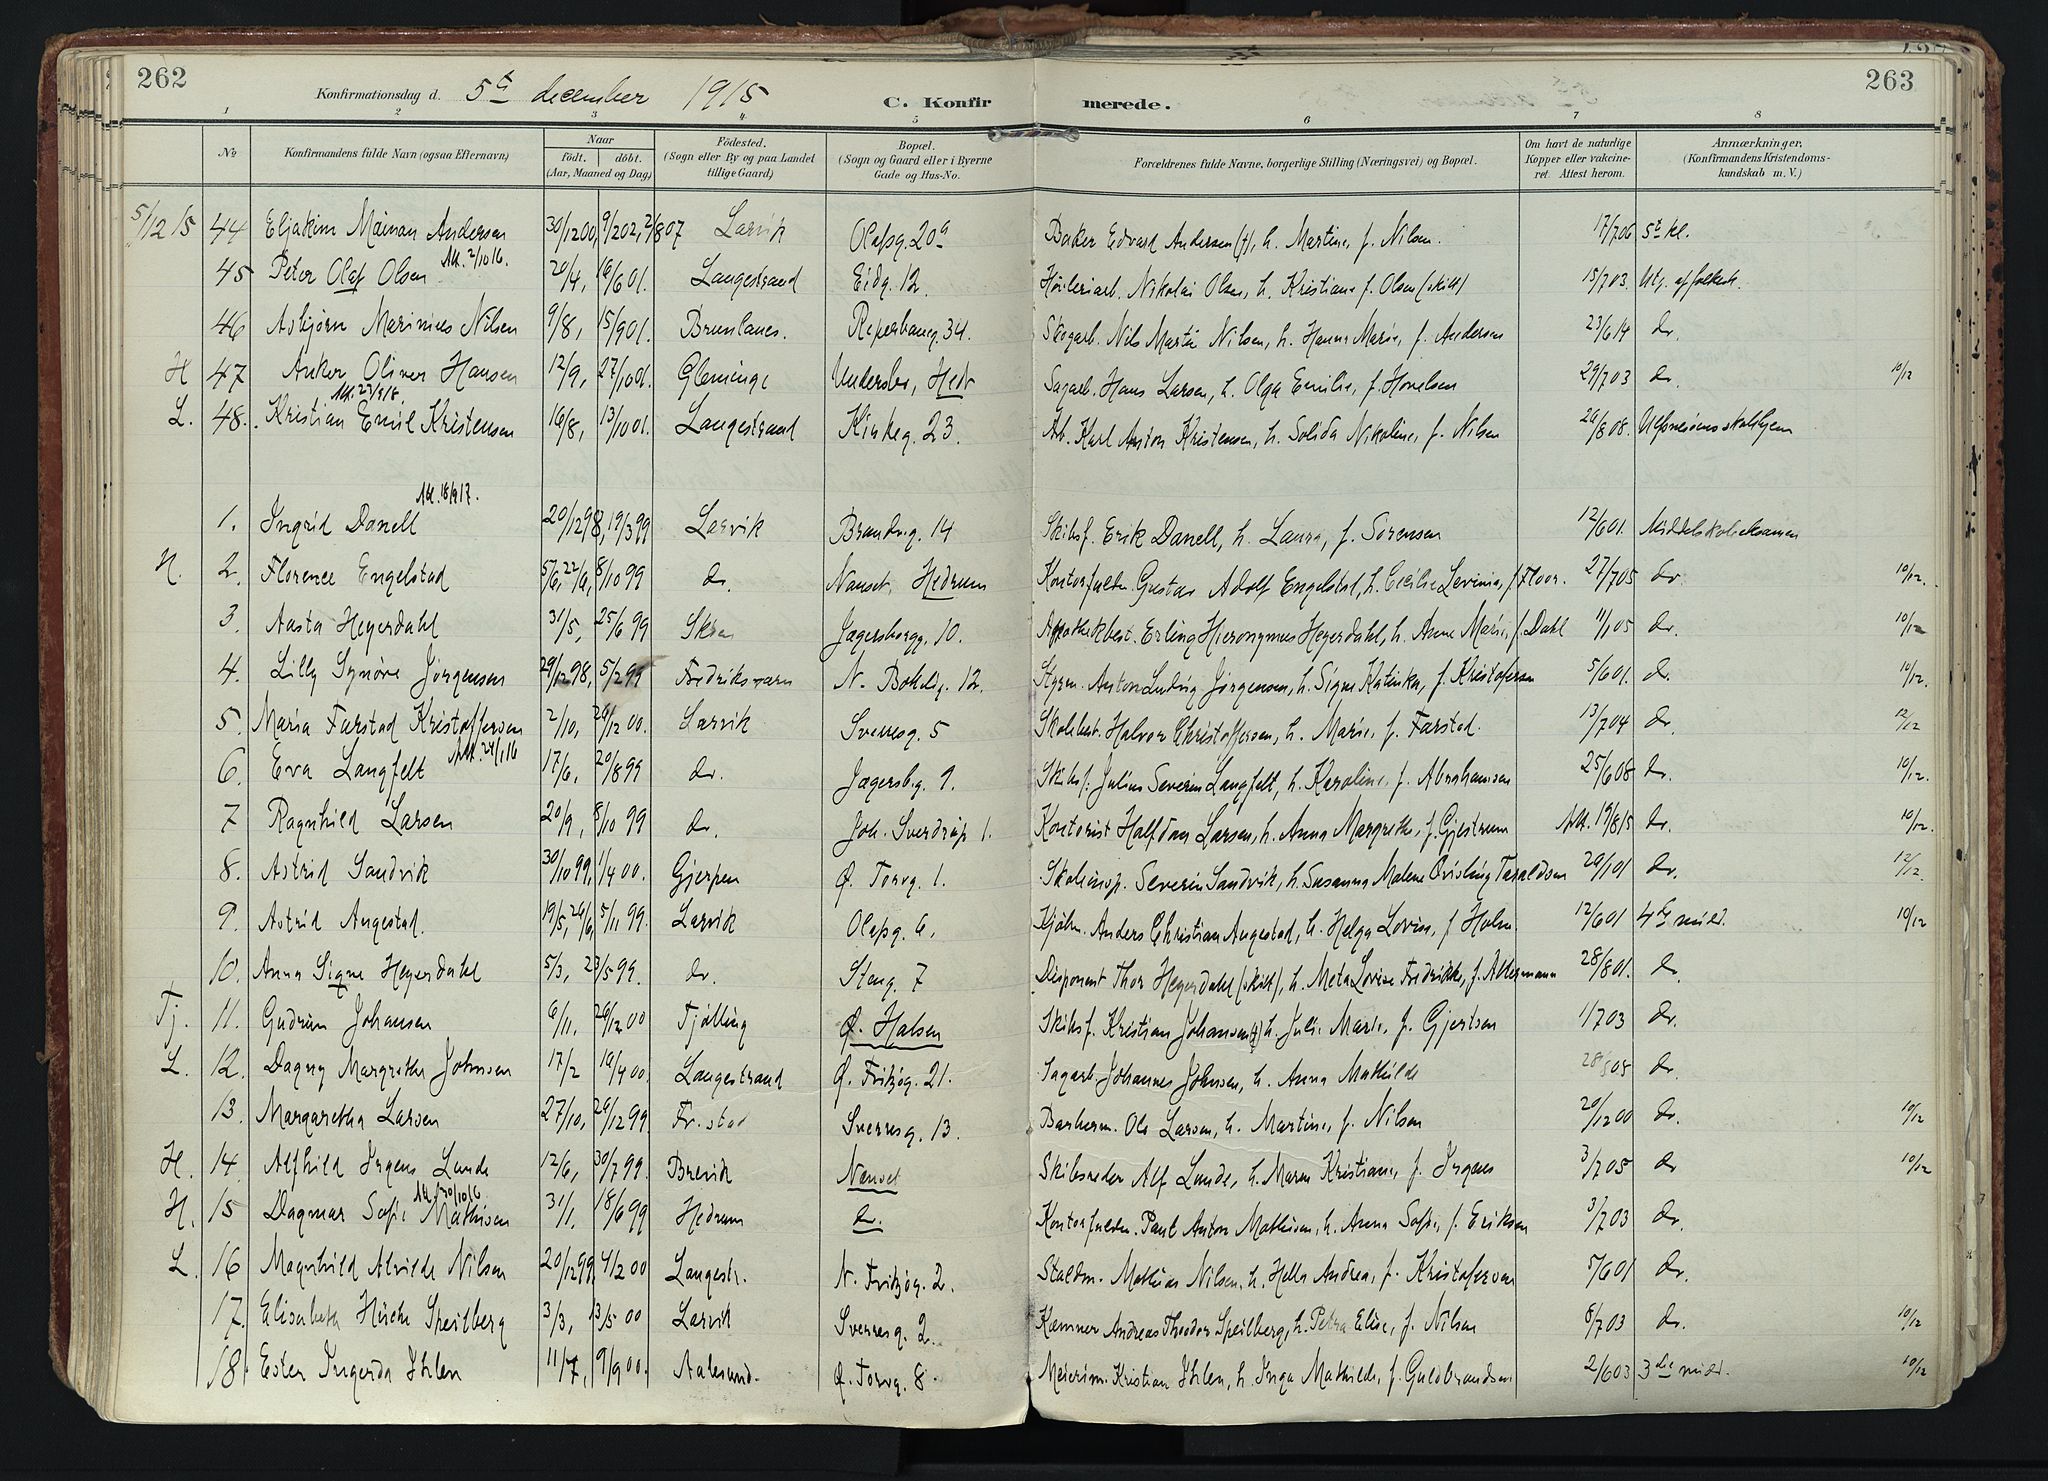 262
Konfirmationsdag d. 5te december 1915
C. Konfirmerede.
263
1 2 3 4 5 6 7 8
No
Konfirmandens fulde Navn (ogsaa Efternavn)
Naar
født. døbt.
(Aar, Maaned og Dag)
Fødested.
(Sogn eller By og paa Landet tillige Gaard)
Bopæl.
(Sogn og Gaard eller i Byerne Gade og Hus-No.
Forældrenes fulde Navne, borgerlige Stilling (Næringsvei) og Bopæl.
Om havt de naturlige Kopper eller vaccineret. Attest herom.
Anmærkninger,
(Konfirmandens Kristendomskundskab m. V.)
5/12 15 44 Eljakim Andersen 30/1200, 9/202, 2/807 Larvik Olafsg. 20a Baker Edvard Andersen (†), h. Martine, f. Nilsen. 17/706 5te kl.
Att. 2/10 16.
45 Peter Olaf Olsen 20/4, 16/601. Langestrand Eidg. 12. Høvleriarb. Nikolai Olsen, h. Kristiane f. Olsen (skilt) 15/703. Utg. af folkesk.
46 Asbjørn Marinius Nilsen 9/8, 15/901. Brunlanes. Reperbaneg. 34. Skogarb. Nils Martin Nilsen, h. Hanna Marie, f. Andersen 23/614 do.
H 47 Anker Oliver Hansen 12/9, 27/1001. Glemminge Undersbo, Hedr Sagarb. Hans Larsen, h. Olga Emilie, f. Hovelsen 29/703 do. 10/12
L. 48. Kristian Emil Kristensen 16/8, 13/1001. Langestrand Kirkeg. 23. Arb. Karl Anton Kristensen, h. Solida Nikoline, f. Nilsen 26/808.
Att. 18/9 17.
1. Ingrid Danell 20/1298, 19/399 Larvik Brandvg. 14 Skibsf. Erik Danell, h. Laura, f. Sørensen 12/601. Middelskoleeksamen
H. 2. Florence Engelstad 8/1099 do. Nanset, Hedrum Kontorfuldm. Gustav Adolf Engelstad, h. Cecilie Levinia, f. Floor. 27/705 do. 10/12.
3. Aasta Heyerdahl 31/5, 25/699 Skien Jægersborgg. 10. Apothekbest. Erling Hieronymus Heyerdahl, h. Anne Marie, f. Dahl 11/105 do. 10/12
4. Lilly Synøve Jørgensen 29/1298, 5/299 Fredriksværn N. Bøkelig. 12. Styrm. Anton Ludvig Jørgensen, h. Signe Katinka, f. Kristofersen 5/601. do. 10/12.
5. Maria Farstad Kristoffersen 2/10, 26/1200. Larvik Sverresg. 5 Skolebest. Halvor Christoffersen, h. Marie, f. Farstad. 13/704 do. 12/12
Att. 24/1 16
6. Eva Langfelt 17/6, 20/899 do. Jægersbg. 9. Skibsf. Julius Severin Langfelt, h. Karoline, f. Abrahamsen 25/608 do. 10/12.
7 Ragnhild Larsen 20/9, 8/1099 do. Joh. Sverdrup 1. Kontorist Halfdan Larsen, h. Anna Margrethe, f. Gjestrum Att. 19/8 15 do. 10/12.
8. Astrid Sandvik 30/1099, 1/400. Gjerpen Ø. Torvg. 1. Skoleinsp. Severin Sandvik, h. Susanna Malene Qvisling Taraldsen 29/101 do. 12/12.
9. Astrid Angestad. 19/5, 24/6, 5/11 99. Larvik Olafsg. 6. Kjøbm. Anders Christian Angestad, h. Helga Lovise, f. Holm. 12/601 4de midd. 10/12
10. Anna Signe Heyerdahl 5/3, 23/599. do. Steng. 7 Disponent Thor Heyerdahl (skilt), h. Meta Lovise Fredrikke, f. 28/801. do.
Tj. 11. Gudrun Johansen 6/11, 26/1200 Tjølling Ø. Halsen Skibsf. Kristian Johansen (†) h. Julie Marie, f. Gjertsen 1/703 do.
L. 12. Dagny Margrethe Johnsen 17/2 19/400. Langestrand Ø. Fritzøg. 21. Sagarb. Johannes Johnsen, h. Anna Mathilde do.
13. Margaretha Larsen 27/10, 26/1299. Fr.stad Sverresg. 13. Barberm. Ole Larsen, h. Martine, f. Nilsen 20/1200 do. 10/12
H. 14. Alfhild Irgens Lunde 12/6, 30/799. Brevik Nanset Skibsreder Alf Lunde, h. Maren Kristiane, f. Irgens 3/705 do. 10/12
Att. 30/10 16
H. 15 Dagmar Sofie Mathisen 31/1, 18/699 Hedrum do. Kontorfuldm. Paul Anton Mathisen, h. Anna Sofie, f. Eriksen 3/703 do.
L. 16 Magnhild Alvilde Nilsen 20/1299, 4/200 Langestr. N. Fritzøg. 2. Staldm. Mathias Nilsen, h. Hella Andrea, f. Kristofersen 5/601 do.
17. Elisabeth Speilberg 3/3, 13/500 Larvik Sverresg. 2. Kæmner Andreas Theodor Speilberg, h. Petra Elise, f. Nilsen 8/703 do. 10/12.
18. Ester Ingerda Ihlen 11/7, 9/900. Aalesund. Ø. Torvg. 8. Meierim. Kristian Ihlen, h. Inga Mathilde, f. Guldbrandsen 2/603 3die midd. 10/12